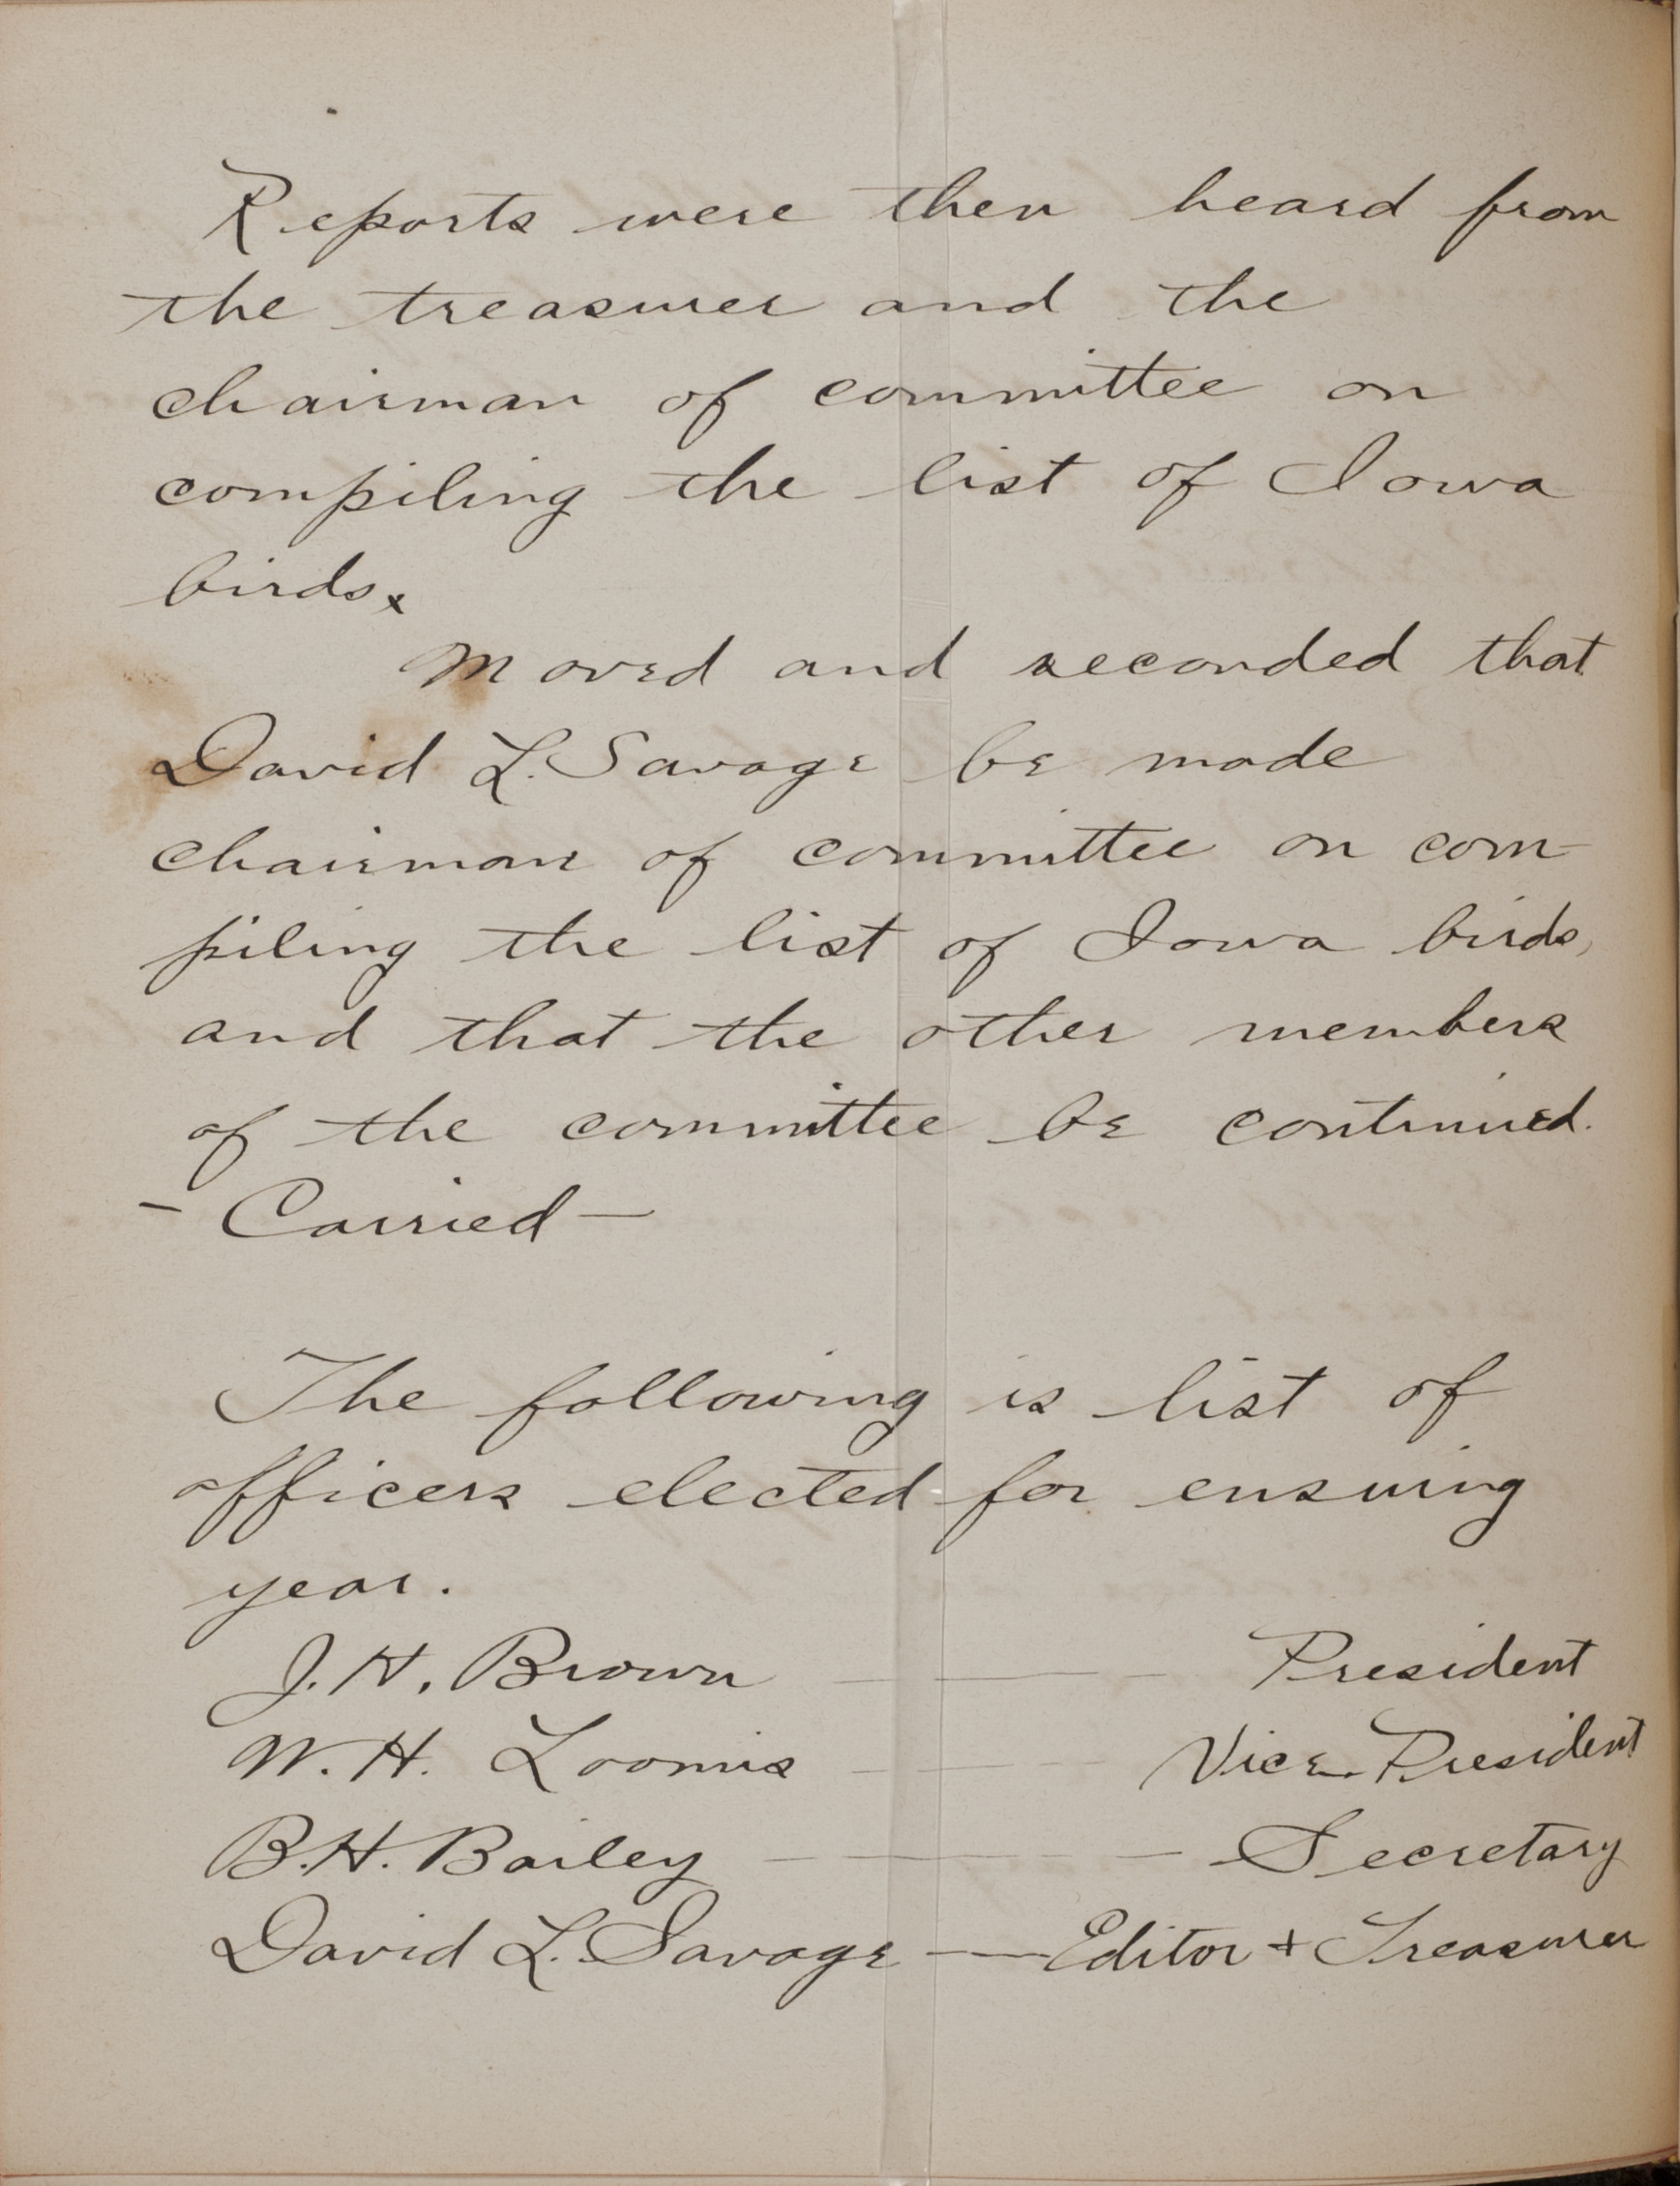 Reports were then heard from
the treasurer and the
chairman of committee on
compiling the list of Iowa
birds.
Moved and seconded that
David L. Savage be made
chairman of committee on com-
piling the list of Iowa birds,
and that the other members
of the committee be continued.
- Carried -
The following is list of
officers elected for ensuing
year.
J. H. Brown — — — President
W. H. Loomis — — — Vice-President
B. H. Bailey — — — Secretary
David L. Savage — — Editor + Treasurer